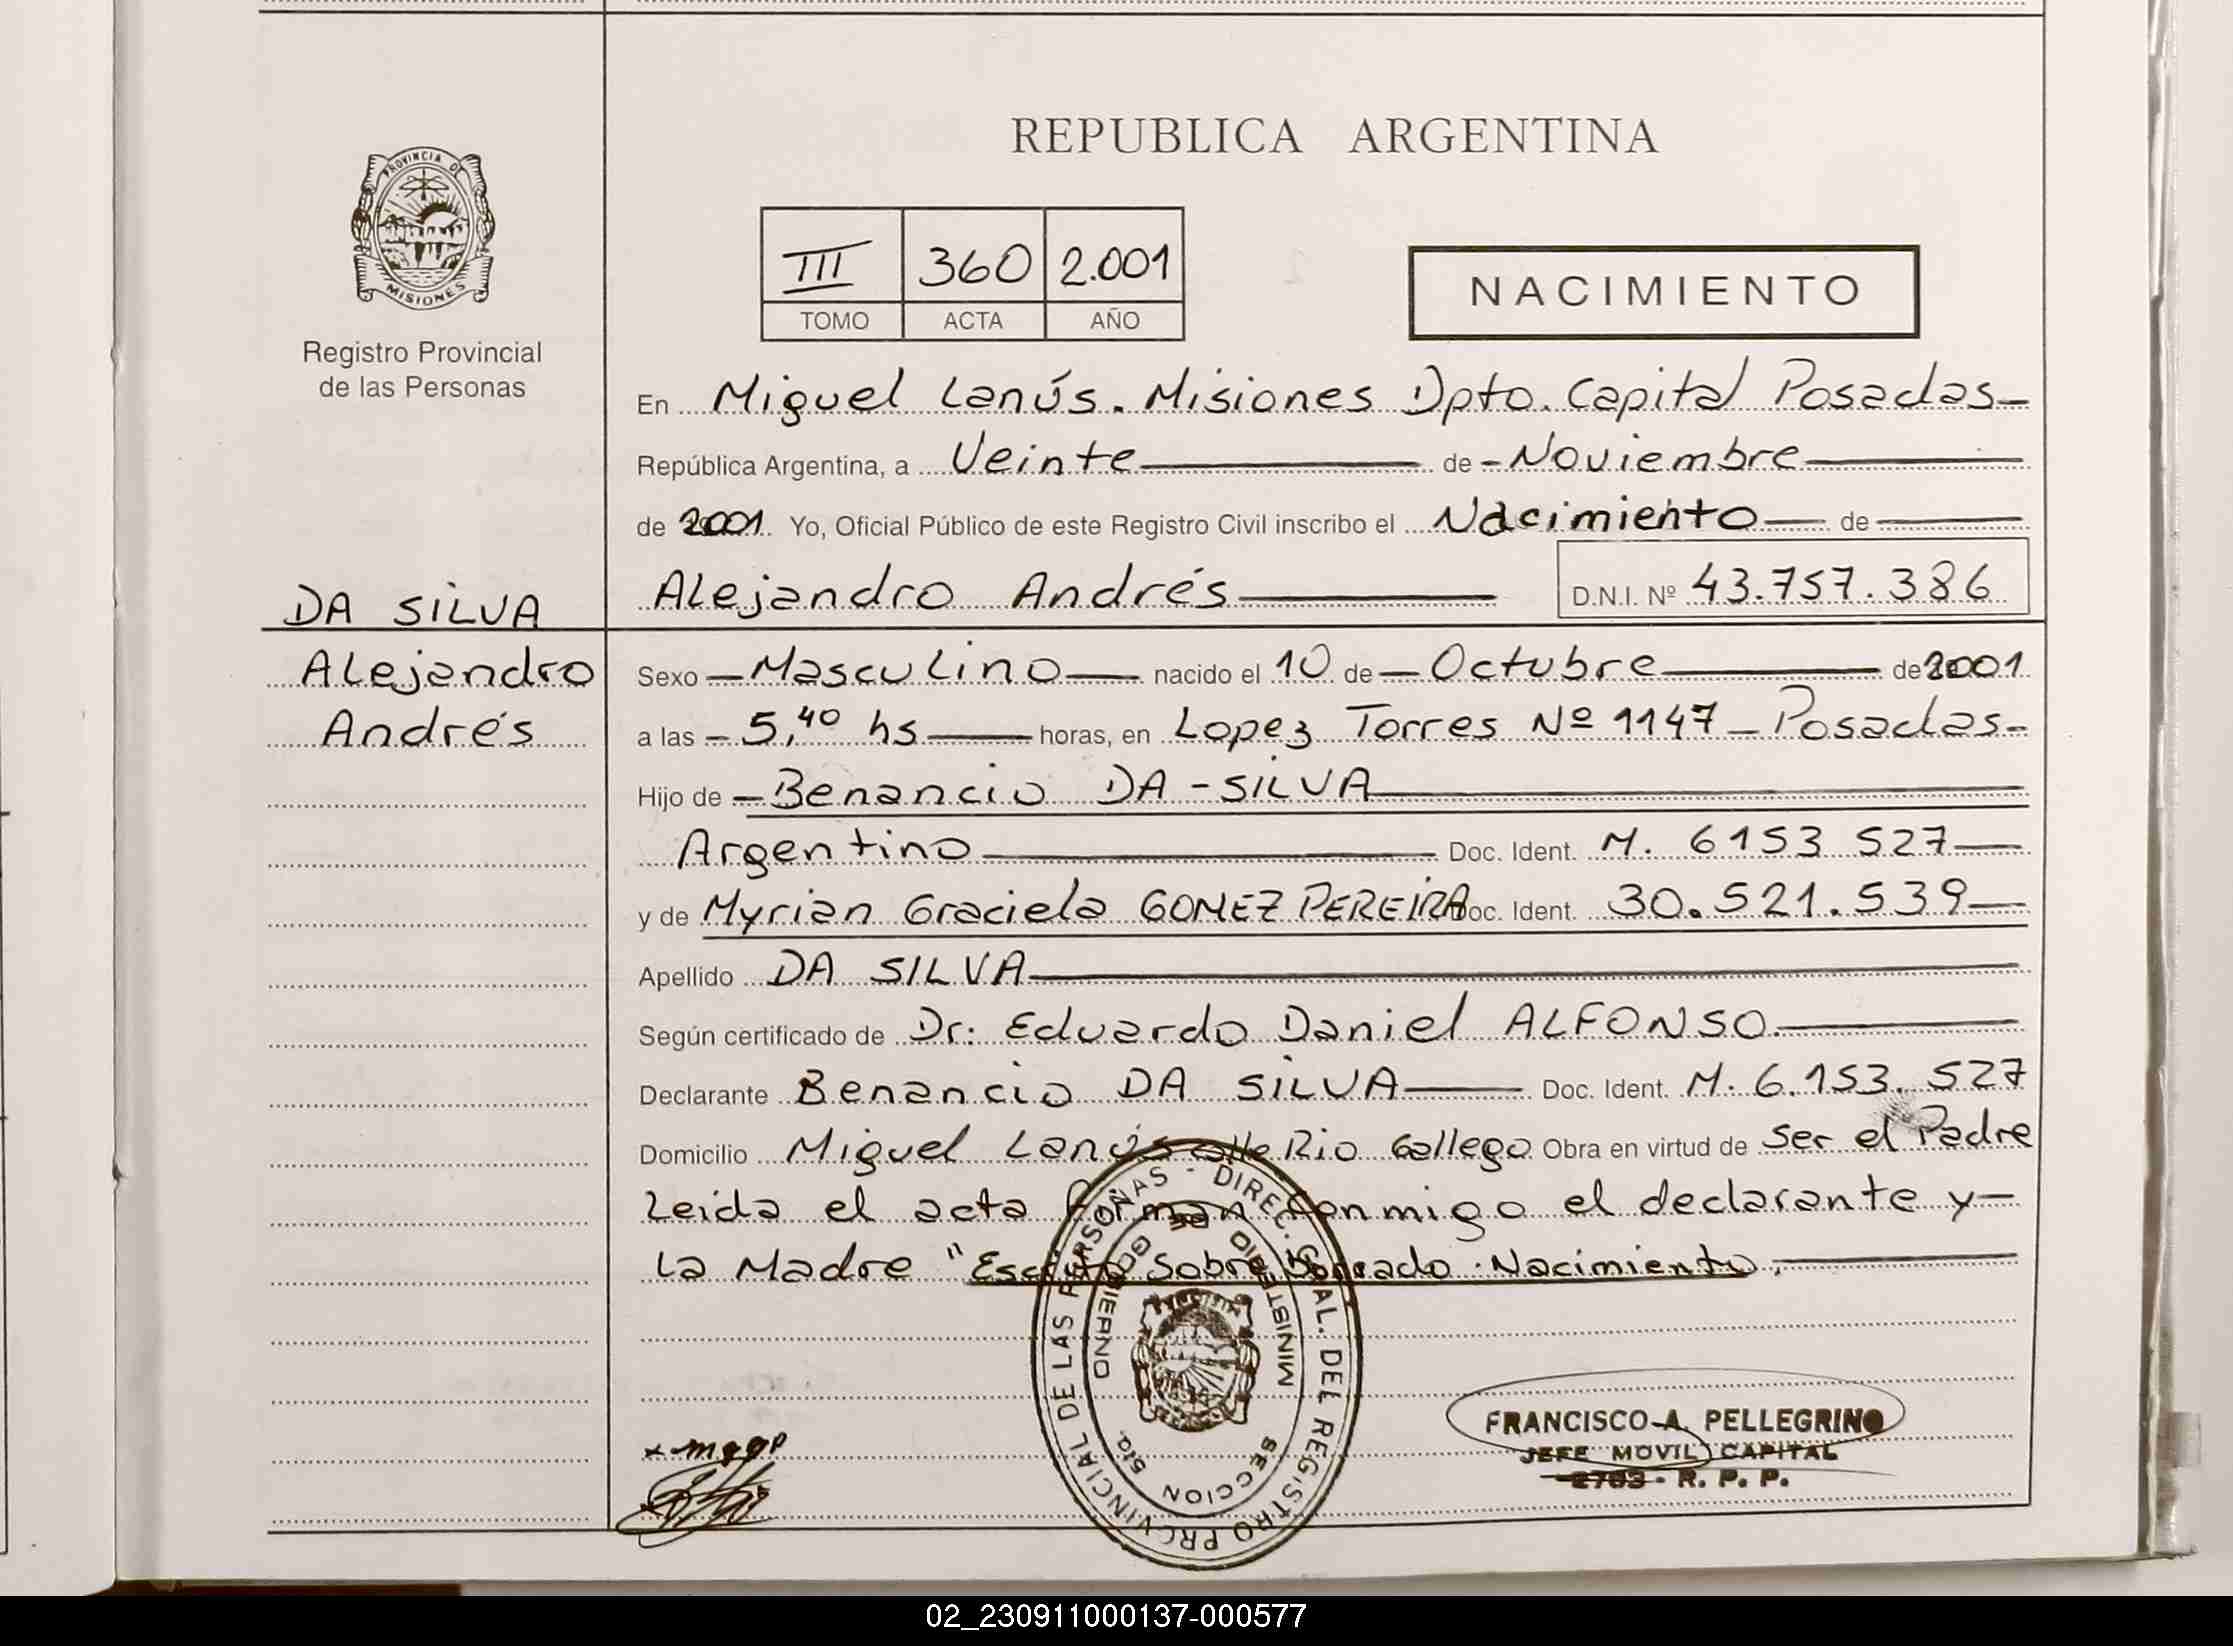 REPUBLICA ARGENTINA
PROVINCIA DE
MISIONES
Registro Provincial
de las Personas
III 360 2.001
TOMO ACTA AÑO
NACIMIENTO
En Miguel Lanús. Misiones Dpto. Capital Posadas
República Argentina, a Veinte de Noviembre
de 2001 Yo, Oficial Público de este Registro Civil inscribo el Nacimiento de
Alejandro Andrés D.N.I. Nº 43.757.386
DA SILVA
Alejandro
Andrés
Sexo Masculino nacido el 10 de Octubre de 2001
a las 5,40 hs horas, en Lopez Torres Nº 1147 - Posadas
Hijo de Benancio DA-SILVA
Argentino Doc. Ident. M. 6153 527
y de Myrian Graciela GOMEZ PEREIRA Doc. Ident. 30.521.539
Apellido DA SILVA
Según certificado de Dr: Eduardo Daniel ALFONSO
Declarante Benancio DA SILVA Doc. Ident. M. 6.153.527
Domicilio Miguel Lanús calle Rio Gallego Obra en virtud de Ser el Padre
Leida el acta forman conmigo el declarante y
la Madre "Escrito Sobre Borrado. Nacimiento.
DIREC. GRAL. DEL REGISTRO PROVINCIAL DE LAS PERSONAS
MINISTERIO DE GOBIERNO
SECCION 5ta.
x mggp
FRANCISCO A. PELLEGRINO
JEFE MOVIL CAPITAL
2703 - R. P. P.
02_230911000137-000577